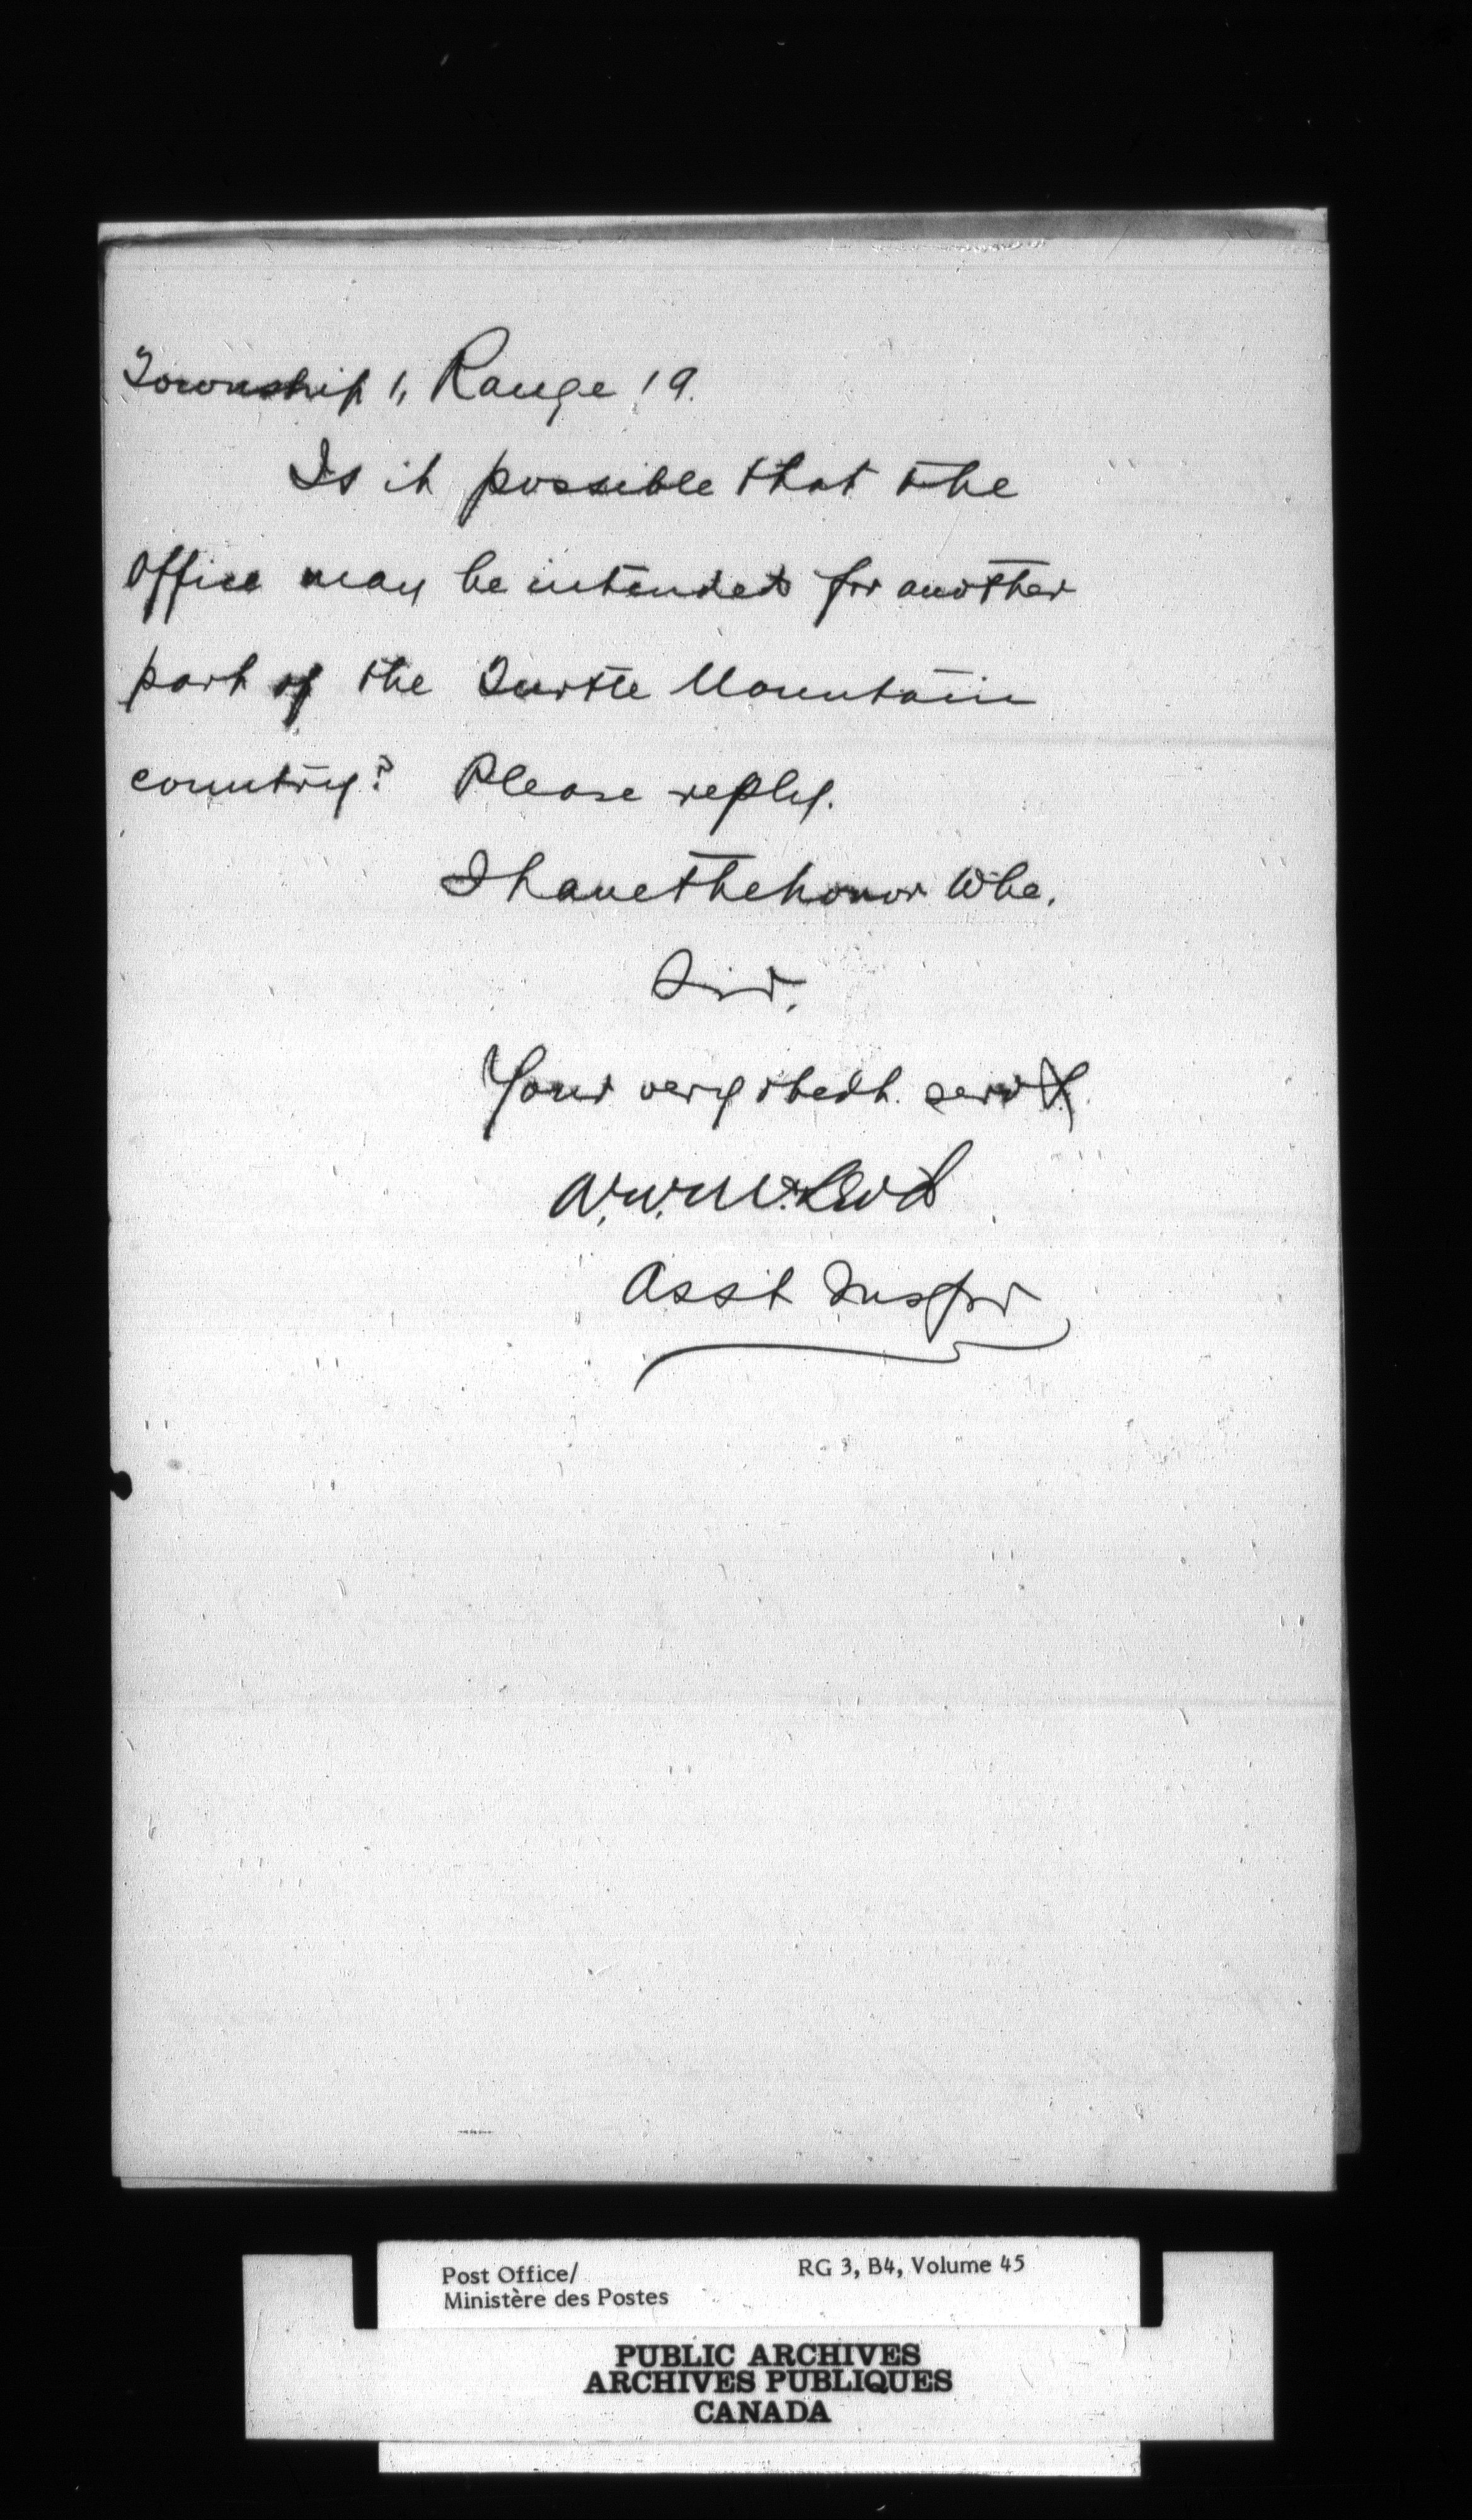 Township 1, Range 19.
Is it possible that the
Office may be intended for another
part of the Turtle Mountain
country? Please reply.
I have the honor to be,
Sir,
Your very obedt. servt.
W.W. McLeod
Asst Inspr
Post Office/
Ministère des Postes
RG 3, B4, Volume 45
PUBLIC ARCHIVES
ARCHIVES PUBLIQUES
CANADA